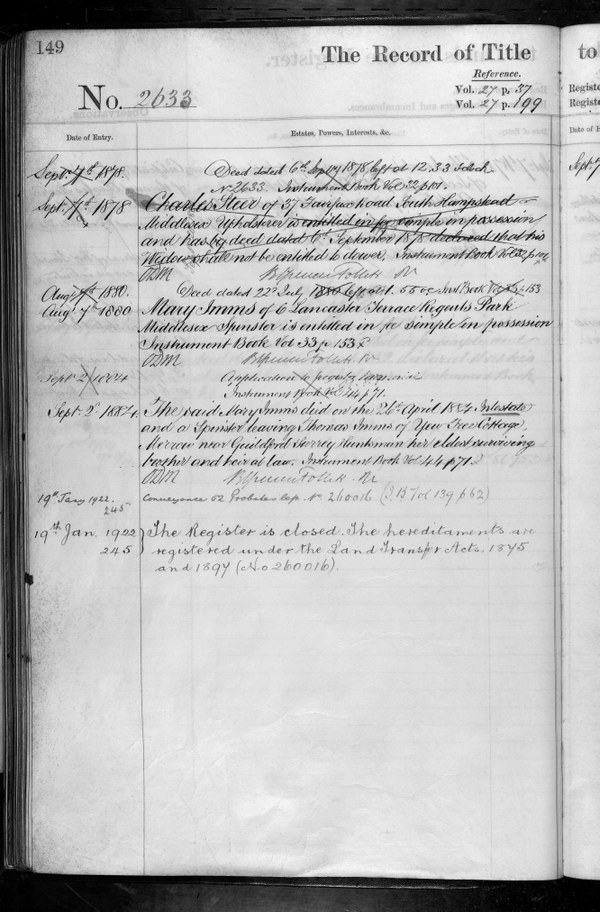 149
The Record of Title
to
Reference.
No. 2633
Vol. 27 p. 37
Vol. 27 p. 199
Registe
Registe
Date of Entry.
Estates, Powers, Interests, &c.
Date of E
Sept. 7th 1878.
Deed dated 6th Sep 1878 left at 12.33
No 2633 Instrument Book Vol
Sept. 7th 1878
Charles Steer of 37 Fairfax Road South Hampstead
Middlesex Upholsterer is entitled in fee simple in possession
and has by deed dated 6th September 1878 declared that his
Widow shall not be entitled to dower. Instrument Book Vol
Augt 7th 1880.
Deed dated 22nd July 1880 left at Inst. Book Vol 153
Augt 7th 1880
Mary Imms of 6 Lancaster Terrace Regents Park
Middlesex Spinster is entitled in fee simple in possession
Instrument Book Vol 33 p 153
Sept 2 1884
Application to
Instrument Book Vol 44 p 71.
Sept. 2nd 1884.
The said Mary Imms died on the 26th April 1884 Intestate
and a Spinster leaving Thomas Imms of Yew Tree Cottage,
Merrow near Guildford Surrey Huntsman her eldest surviving
brother and heir at law. Instrument Book Vol 44 p 71.
19th Jany 1922.
245
Conveyance 02 Probates No 260016 (I.B. Vol 139 p 62)
19th Jan. 1922
The Register is closed. The hereditaments are
245
registered under the Land Transfer Acts. 1875
and 1897 (No 260016).